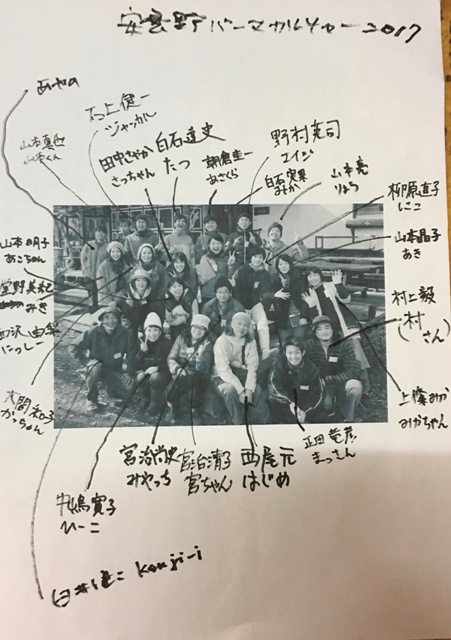 安曇野パーマカルチャー2017
あやの
石上健一
ジャッカル
山本
山本くん
田中さやか
さっちゃん
白石達史
たつ
朝倉圭一
あさくら
野村英司
エイジ
白石実果
みか
山本亮
りょう
柳原直子
しこ
山本明子
あこちゃん
山本晶子
あき
堂野美紀
みき
西沢
にっしー
村上毅
(村さん)
大関和子
かっちゃん
上條みか
みかちゃん
宮治尚史
みやっち
宮治清子
宮ちゃん
西尾元
はじめ
正田竜彦
まっさん
牛嶋寛子
ひーこ
臼井健二 kouji-i